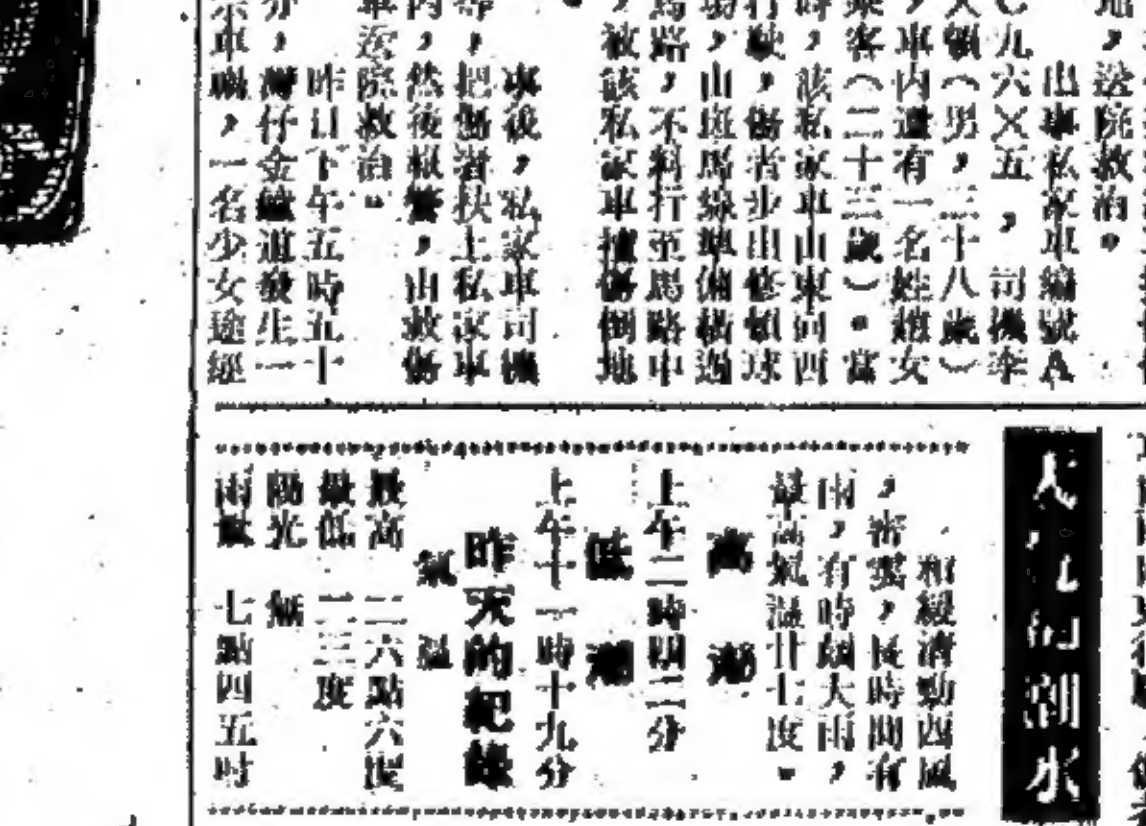 地，送院救治。
出事私家車編號A
七九六××五，司機李
大頓（男，三十八歲）
，車內還有一名姓趙女
乘客（二十三歲）。當
時，該私家車由東向西
行駛，傷者步出修頓球
場，由斑馬線準備橫過
馬路，不料行至馬路中
，被該私家車撞傷倒地
事後，私家車司機
等，把傷者扶上私家車
內，然後報警，由救傷
車送院救治。
昨日下午五時五十
分，灣仔金鐘道發生一
宗車禍，一名少女途經
天氣和潮水
和緩清勁西風
，密雲，長時間有
雨，有時頗大雨，
最高氣溫廿七度。
高潮
上午二時明二分
低潮
上午十一時十九分
昨天的紀錄
氣溫
最高 二六點六度
最低 二三度
陽光 無
雨量 七點四五吋